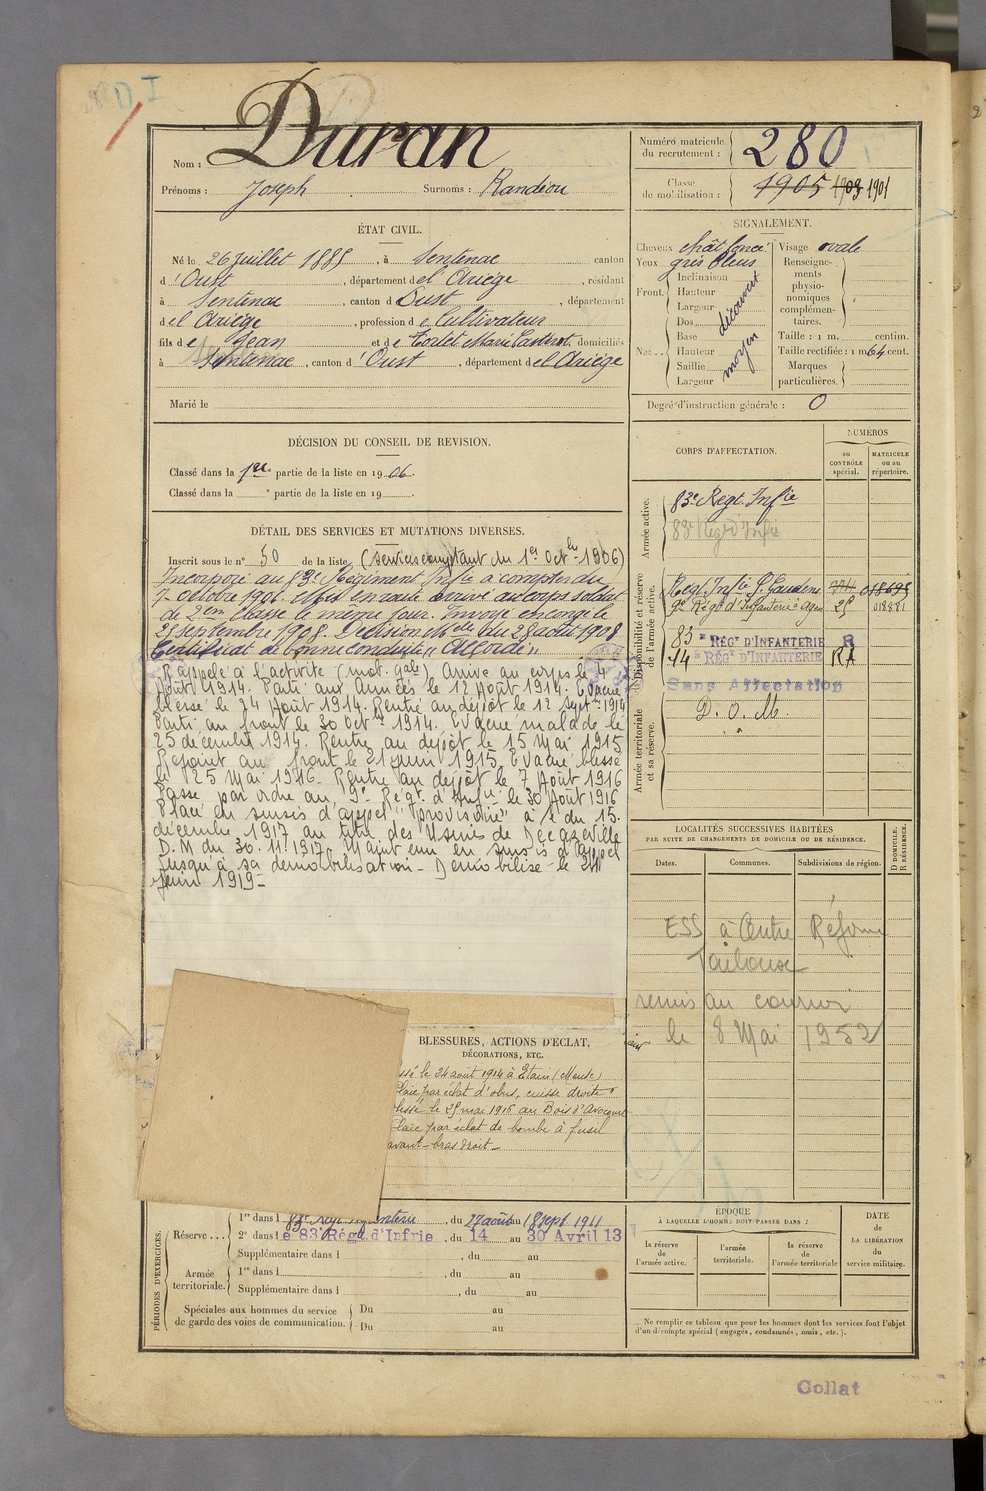 Nom : Duran
Prénoms : Joseph Surnoms : Randéou
Numéro matricule du recrutement : 280
Classe de mobilisation : 1905 1903 1901
ÉTAT CIVIL.
Né le 26 juillet 1885, à Sentenac canton
d'Oust, département de l'Ariège, résidant
à Sentenac, canton d'Oust, département
de l'Ariège, profession de Cultivateur
fils de Jean et de Tortet Marie, domiciliés
à Sentenac, canton d'Oust, département de l'Ariège
Marié le
SIGNALEMENT.
Cheveux chât foncé Visage ovale
Yeux gris bleus
Front. Inclinaison Hauteur Largeur découvert
Nez.. Dos Base Hauteur Saillie Largeur moyen
Renseignements physionomiques complémentaires.
Taille : 1 m. centim.
Taille rectifiée : 1 m 64 cent.
Marques particulières.
Degré d'instruction générale : 0
DÉCISION DU CONSEIL DE REVISION.
Classé dans la 1re partie de la liste en 1906.
Classé dans la e partie de la liste en 19
DÉTAIL DES SERVICES ET MUTATIONS DIVERSES.
Inscrit sous le n° 50 de la liste (services comptant du 1er Octbre 1906)
Incorporé au 83e Régiment Infie à compter du
7 octobre 1906. Mis en route arrivé au corps soldat
de 2em classe le même jour. Envoyé en congé le
25 septembre 1908. Décision Mlle du 28 août 1908
Certificat de bonne conduite "Accordé"
Rappelé à l'activité (mob. gale) Arrivé au corps le 4
Août 1914. Parti aux Armées le 12 Août 1914. Evacué
blessé le 24 Août 1914. Rentré au dépôt le 12 Septre 1914
Parti au front le 30 Octbre 1914. Evacué malade le
25 décembre 1914. Rentré au dépôt le 15 Mai 1915
Rejoint au front le 21 juin 1915. Evacué blessé
le 25 Mai 1916. Rentré au dépôt le 7 Août 1916
Passé par ordre au 9e Régt. d'Infie le 30 Août 1916
Placé en sursis d'appel "provisoire" à c. du 15.
décembre 1917 au titre des Usines de Decazeville
D.M du 30.11.1917. Maintenu en sursis d'appel
jusqu'à sa démobilisation. Démobilisé le
Juin 1919.
CORPS D'AFFECTATION.
NUMÉROS
au CONTRÔLE spécial.
MATRICULE ou au répertoire.
Armée active.
83e Regt Infie
83e Regt d'Infie
Disponibilité et réserve de l'armée active.
Regt Infie St Gaudens 018695
9e Régt d'Infanterie Agen 25 018881
83e RÉGT D'INFANTERIE R
14e RÉGT D'INFANTERIE RA
Sans Affectation
Armée territoriale et sa réserve.
D. O. M.
LOCALITÉS SUCCESSIVES HABITÉES
PAR SUITE DE CHANGEMENTS DE DOMICILE OU DE RÉSIDENCE.
Dates. Communes. Subdivisions de région. D DOMICILE. R RÉSIDENCE.
ESS à Centre Réforme
Toulouse
remis au courrier
le 8 Mai 1952
BLESSURES, ACTIONS D'ÉCLAT,
DÉCORATIONS, ETC.
ssé le 24 août 1914 à Etain (Meuse)
Plaie par éclat d'obus, cuisse droite
lessé le 25 mai 1916 au Bois d'Avocourt
Plaie par éclat de bombe à fusil
avant-bras droit
PÉRIODES D'EXERCICES.
Réserve... 1re dans le 83e regt Infanterie, du 27 août au 18 sept 1911
2e dans le 83e Régt d'Infrie, du 14 au 30 Avril 13
Supplémentaire dans l , du au
Armée territoriale. 1re dans l , du au
Supplémentaire dans l , du au
Spéciales aux hommes du service de garde des voies de communication. Du au
Du au
ÉPOQUE
À LAQUELLE L'HOMME DOIT PASSER DANS :
la réserve de l'armée active.
l'armée territoriale.
la réserve de l'armée territoriale
DATE de LA LIBÉRATION du service militaire.
Ne remplir ce tableau que pour les hommes dont les services font l'objet
d'un décompte spécial (engagés, condamnés, omis, etc.).
Collat